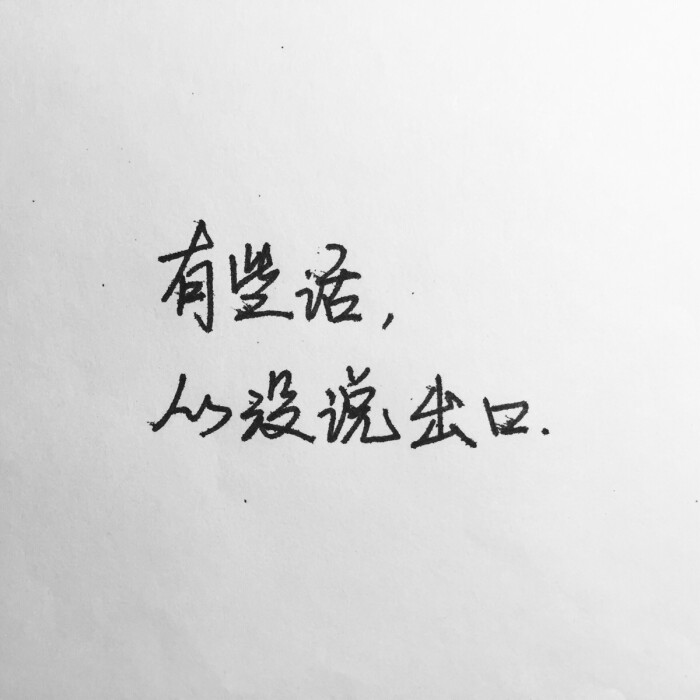 有些话,
从没说出口.